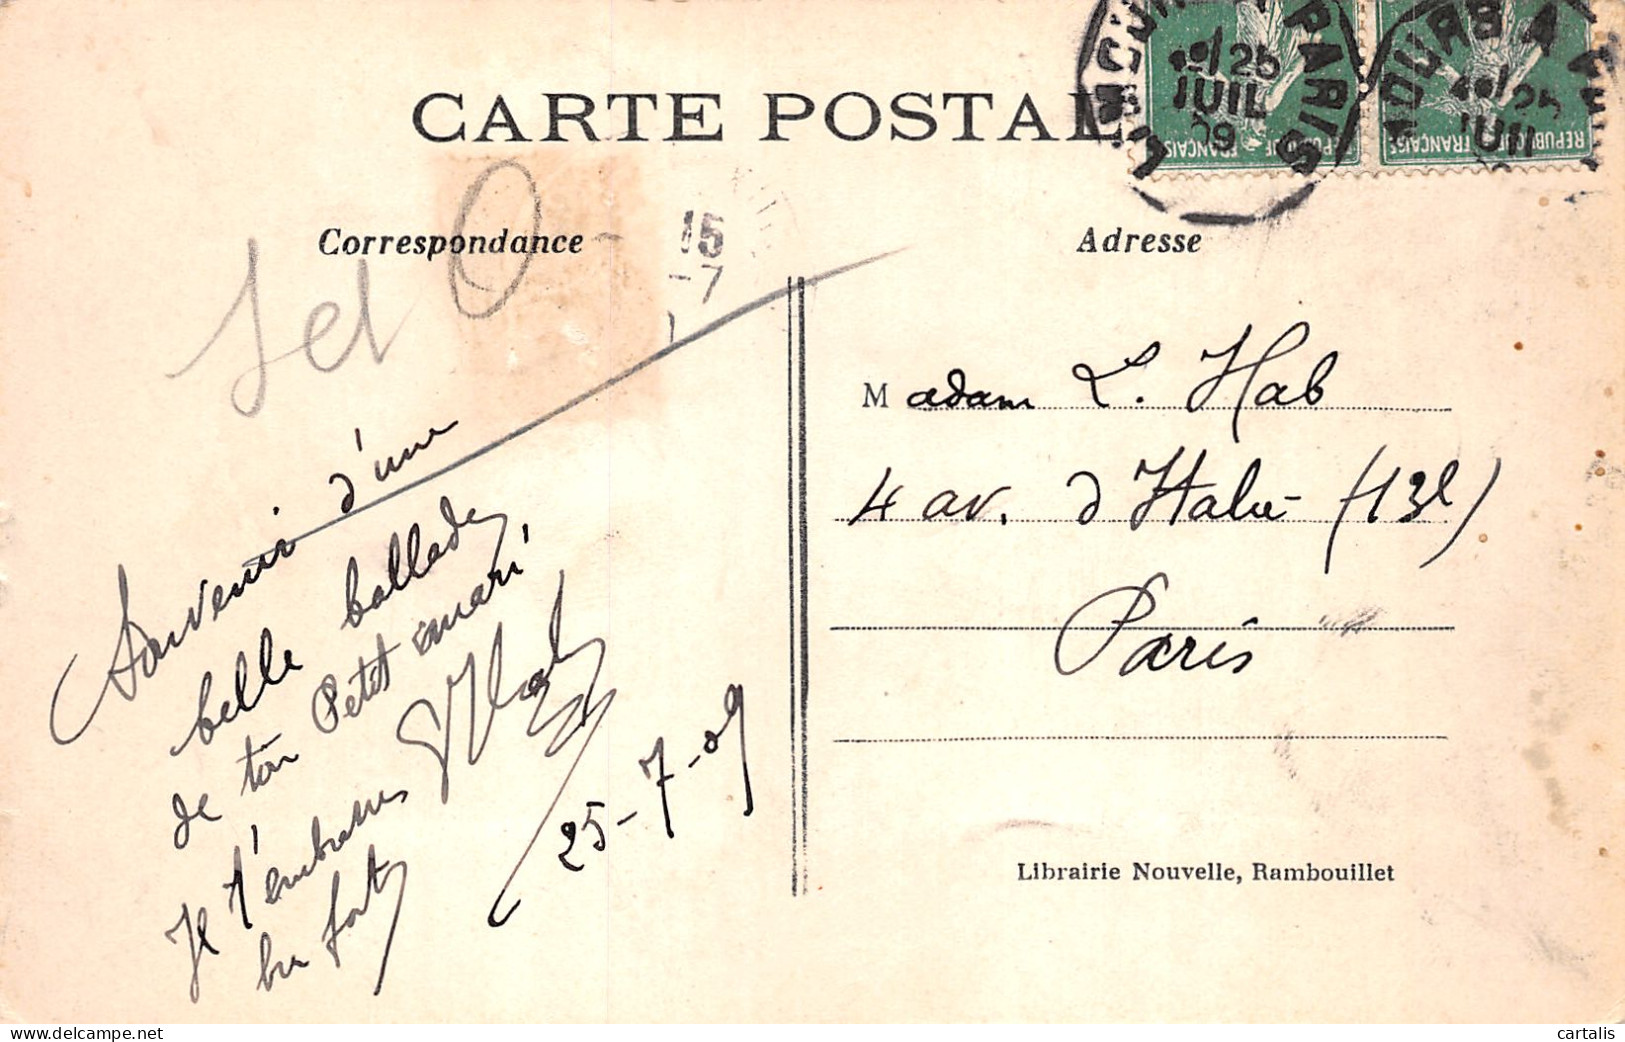 CARTE POSTALE
LIMOURS A PARIS
25
JUIL
09
REPUBLIQUE FRANÇAISE
LIMOURS A PARIS
25
JUIL
REPUBLIQUE FRANÇAISE
Correspondance
15
-7
Adresse
Souvenir d'une
belle ballade
de ton Petit mari
Je t'embrasses
bien fort
Hab
25-7-09
Madam L. Hab
4 av. d'Italie (13e)
Paris
Librairie Nouvelle, Rambouillet
cartalis